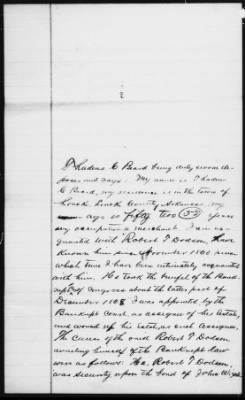 C Beard being duly sworn de-
poses and says. My name is
C Beard, my residence is in the town of
County Arkansas, my
age is fifty two (52) years
my occupation a merchant. I am ac-
quainted with Robert T Dodson, have
known him since November 1866 since
which time I have been intimately acquainted
with him. He took the benefit of the Bank-
rupt of Congress about the latter part of
December 1868 I was appointed by the
Bankrupt Court, as assignee of his estate,
and wound up his estate, as such Assignee,
The cause of the said Robert T Dodson
availing himself of the Bankrupt law
was as follows. He, Robert T Dodson
was security upon the bond of John